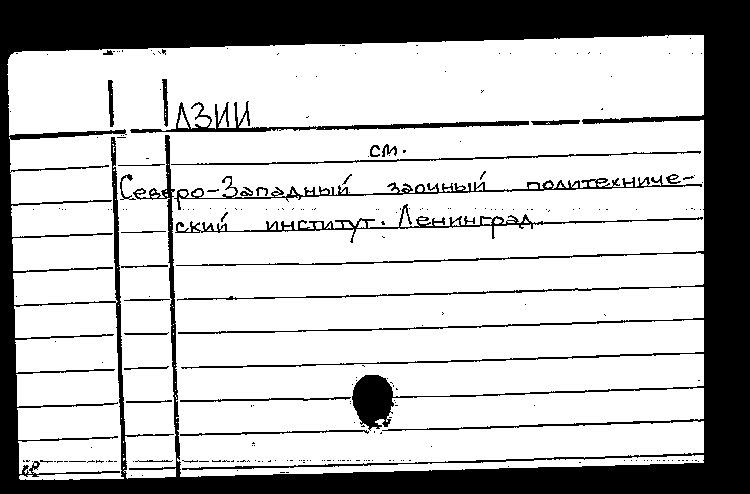 ЛЗИИ
см.
Северо-Западный заочный политехниче-
ский институт. Ленинград